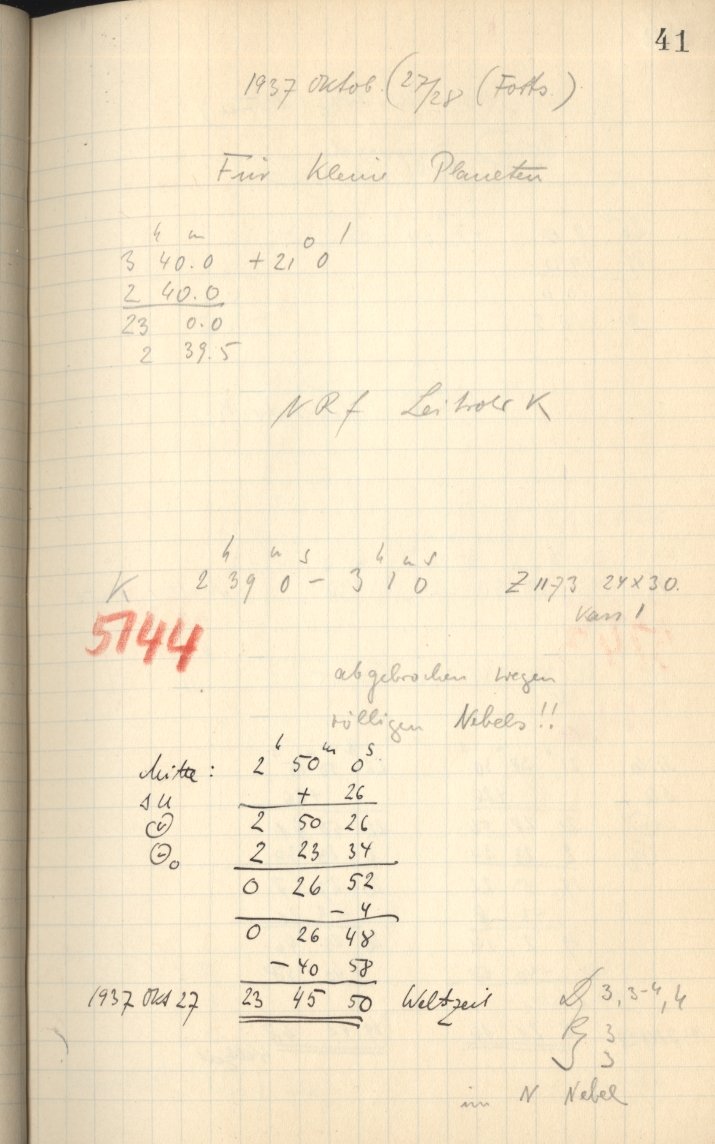 41
1937 Oktob. (27/28 (Forts.)
Für Kleine Planeten
h m o '
3 40.0 + 21 0
2 40.0
23 0.0
2 39.5
N R f K
h m s h m s
K 2 39 0 - 3 1 0 Z 1173 24x30.
5144
abgebrochen wegen
völligen Nebels!!
h m s
Mitte: 2 50 0
Δu + 26
2 50 26
2 23 34
0 26 52
- 4
0 26 48
- 40 58
1937 Okt 27 23 45 50 Weltzeit
3, 3-4, 4
3
3
im N Nebel